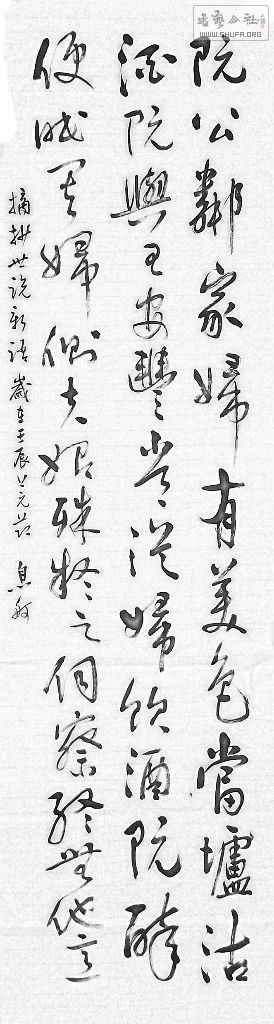 阮公鄰家婦有美色當壚沽
酒阮與王安豐常從婦飲酒阮醉
便眠其婦側夫始殊疑之伺察終無他意
摘抄世说新语 歲在壬辰上元節
书艺公社
WWW.SHUFA.ORG